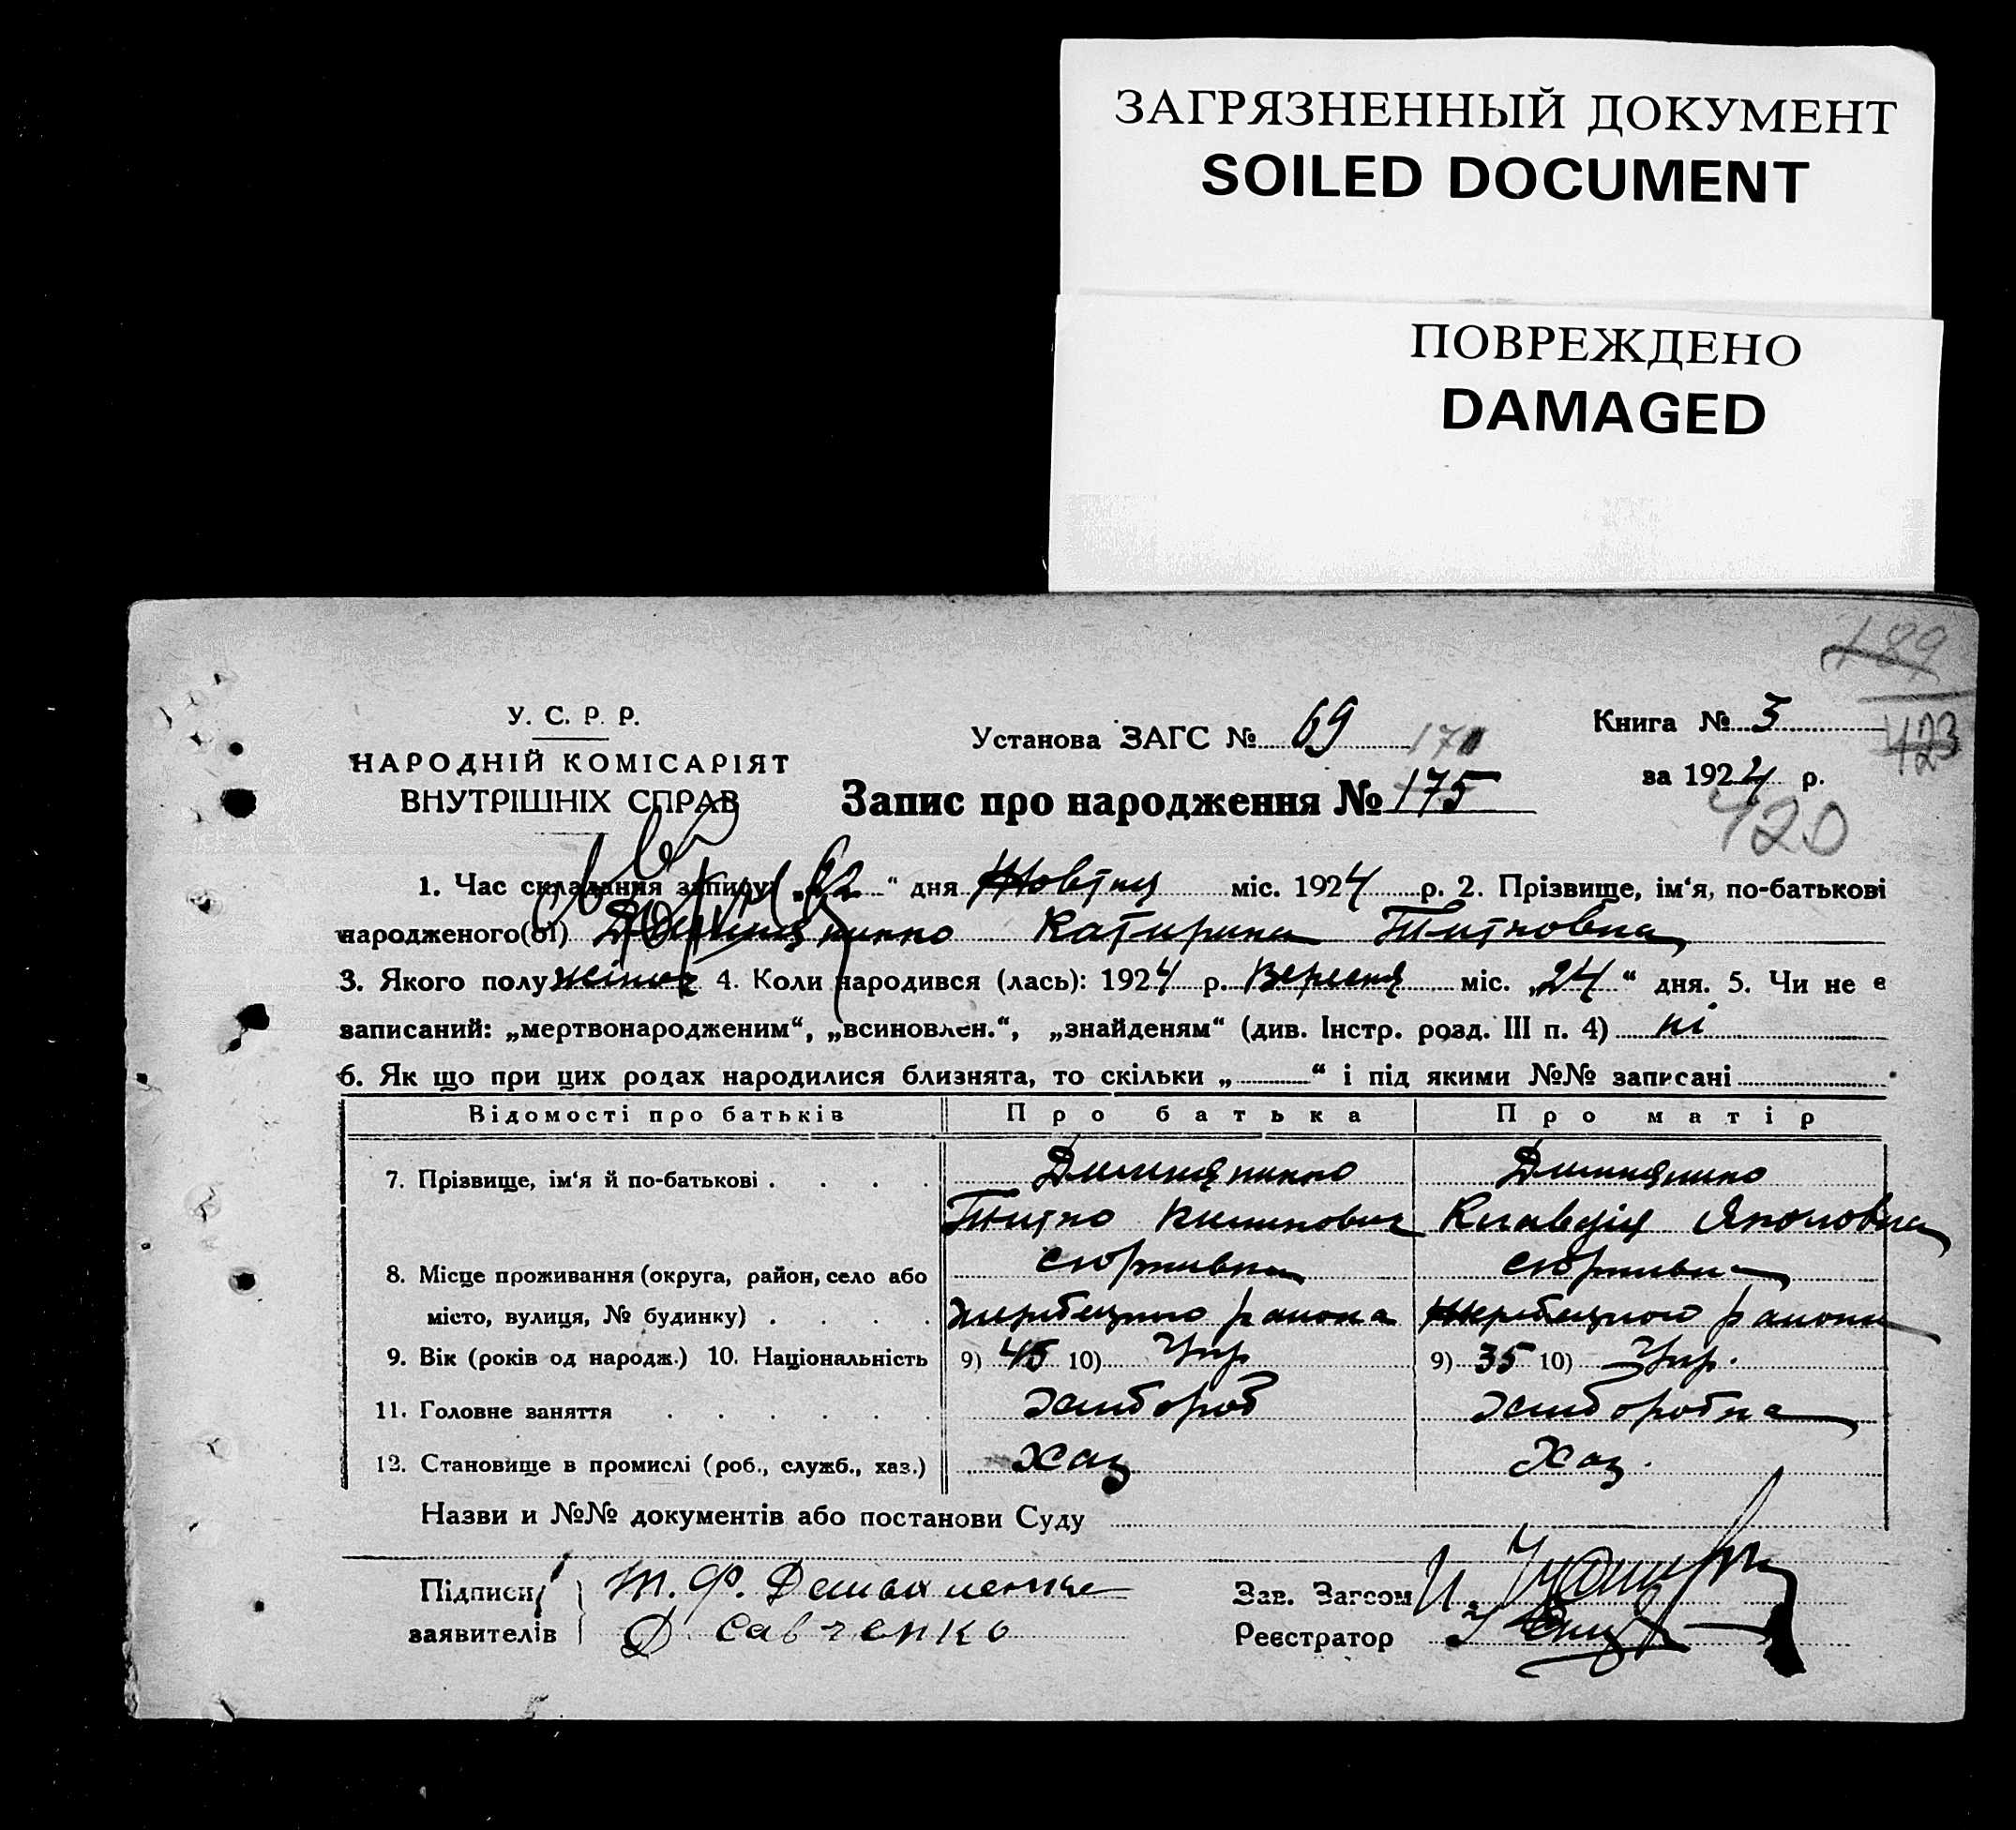 ЗАГРЯЗНЕННЫЙ ДОКУМЕНТ
SOILED DOCUMENT
ПОВРЕЖДЕНО
DAMAGED
189
423
420
У. С. Р. Р.
НАРОДНІЙ КОМІСАРІЯТ
ВНУТРІШНІХ СПРАВ
Установа ЗАГС № 69
170
Книга № 3
за 1924 р.
Запис про народження № 175
1. Час складання запису „ 2 “ дня Жовтня міс. 1924 р. 2. Прізвище, ім‘я, по-батькові
народженого(ої) Катирина Титковна
3. Якого полу жіноч 4. Коли народився (лась): 1924 р. Вересня міс. „24“ дня. 5. Чи не є
записаний: „мертвонародженим“, „всиновлен.“, „знайденям“ (див. Інстр. розд. III п. 4) ні
6. Як що при цих родах народилися близнята, то скільки „ “ і під якими №№ записані
Відомості про батьків Про батька Про матір
7. Прізвище, ім‘я й по-батькові
Титко Клавдія
8. Місце проживання (округа, район, село або
місто, вулиця, № будинку)
жеребецкого района жеребецкого района
9. Вік (років од народж.) 10. Національність 9) 45 10) Укр 9) 35 10) Укр.
11. Головне заняття хлібороб хлібородка
12. Становище в промислі (роб., служб., хаз.) Хаз Хаз.
Назви и №№ документів або постанови Суду
Підписи Т. Ф.
заявителів Д. Савченко
Зав. Загсом
Реєстратор